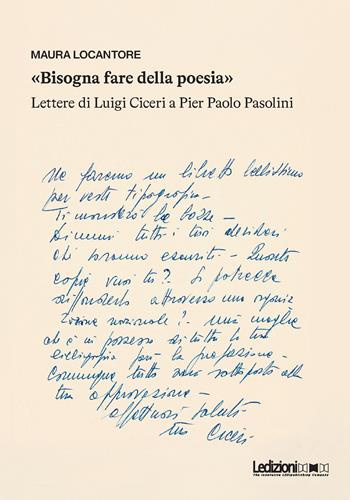 MAURA LOCANTORE
«Bisogna fare della poesia»
Lettere di Luigi Ciceri a Pier Paolo Pasolini
Ne faremo un libretto bellissimo
per veste tipografica -
Ti manderò le bozze -
Dimmi tutti i tuoi desideri
che saranno esauriti - Quante
copie vuoi tu? - Si potrebbe
diffonderlo attraverso una
nazionale? - Mia moglie
che è in possesso di tutta la tua
bibliografia farà la prefazione -
Comunque tutto sarà sottoposto alla
tua approvazione -
affettuosi saluti
tuo Ciceri
Ledizioni
The Innovative LEDIpublishing Company